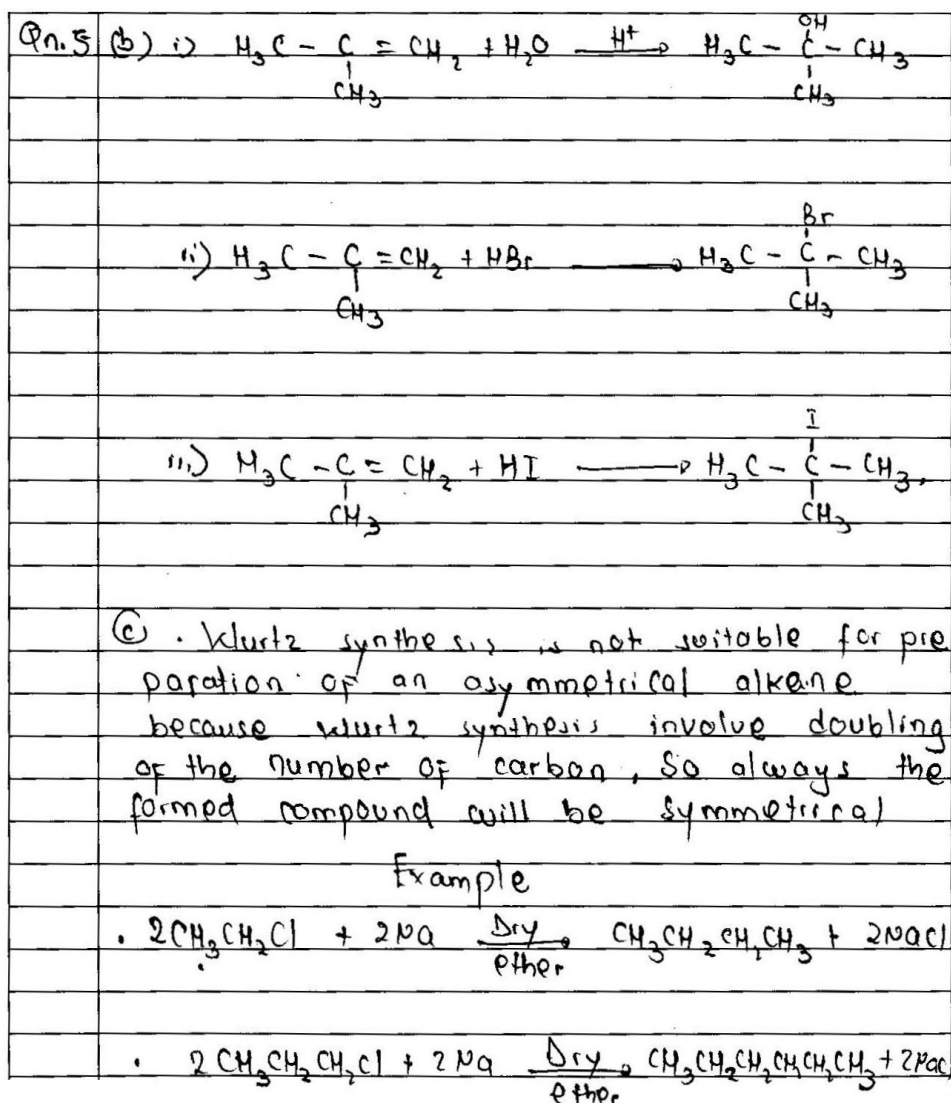 Qn.5 (b) i) H₃C - C = CH₂ + H₂O H⁺→ H₃C - C - CH₃
OH
CH₃ CH₃
Br
ii) H₃C - C = CH₂ + HBr → H₃C - C - CH₃
CH₃ CH₃
I
iii) H₃C - C = CH₂ + HI → H₃C - C - CH₃.
CH₃ CH₃
(c) . Wurtz synthesis is not suitable for pre
paration of an asymmetrical alkane
because wurtz synthesis involve doubling
of the number of carbon, So always the
formed compound will be symmetrical
Example
. 2CH₃CH₂Cl + 2Na Dry→ CH₃CH₂CH₂CH₃ + 2NaCl
ether
. 2CH₃CH₂CH₂Cl + 2Na Dry→ CH₃CH₂CH₂CH₂CH₂CH₃ + 2NaCl
ether